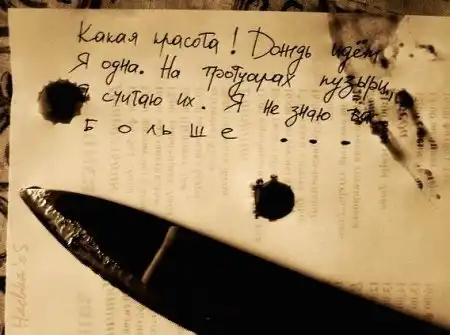 Какая красота! Дождь идёт
Я одна. На тротуарах пузыри,
Я считаю их. Я не знаю ва
Больше ...